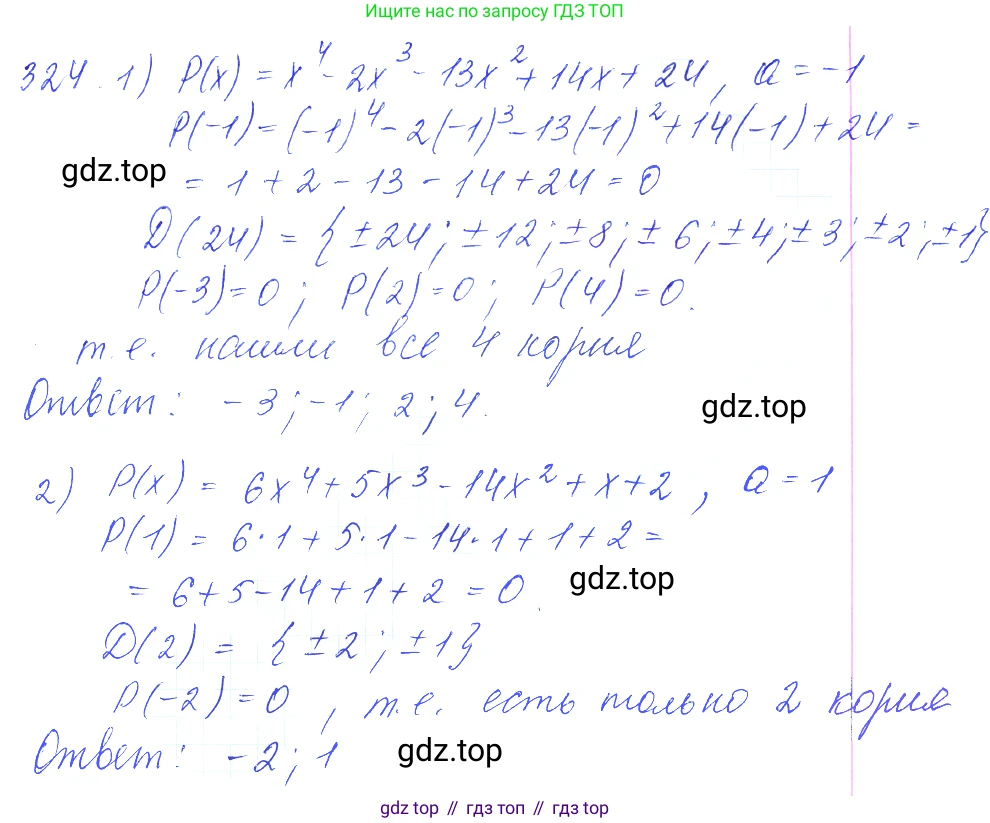 Ищите нас по запросу ГДЗ ТОП
324. 1) P(x) = x⁴ - 2x³ - 13x² + 14x + 24, a = -1
P(-1) = (-1)⁴ - 2(-1)³ - 13(-1)² + 14(-1) + 24 =
gdz.top
= 1 + 2 - 13 - 14 + 24 = 0
D(24) = {±24; ±12; ±8; ±6; ±4; ±3; ±2; ±1}
P(-3) = 0; P(2) = 0; P(4) = 0.
т.е. нашли все 4 корня
Ответ: -3; -1; 2; 4.
gdz.top
2) P(x) = 6x⁴ + 5x³ - 14x² + x + 2, a = 1
P(1) = 6·1 + 5·1 - 14·1 + 1 + 2 =
= 6 + 5 - 14 + 1 + 2 = 0.
gdz.top
D(2) = {±2; ±1}
P(-2) = 0, т.е. есть только 2 корня
Ответ: -2; 1
gdz.top
gdz.top // гдз топ // гдз top